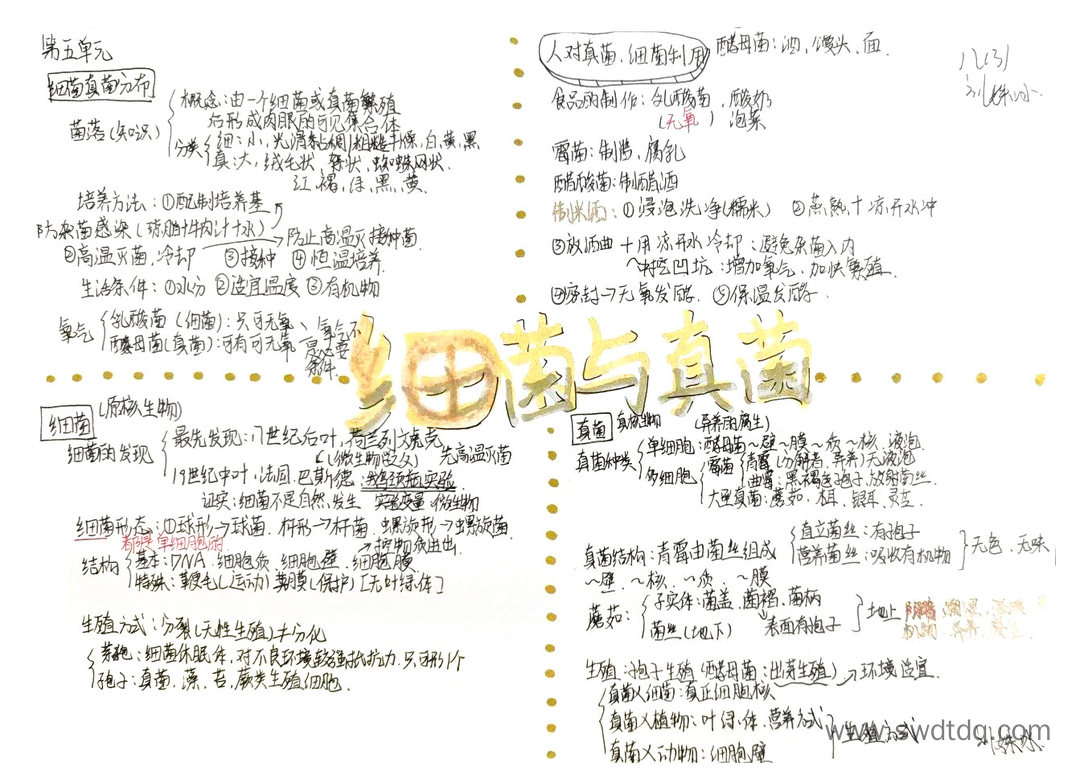 第五单元
细菌真菌分布
菌落(知识)
概念:由一个细菌或真菌繁殖
后形成肉眼的可见集合体
分类
细:小,光滑黏稠/粗糙干燥,白,黄,黑
真:大,绒毛状、絮状、蜘蛛网状.
红,褐,绿,黑,黄.
培养方法:①配制培养基
防杂菌感染(琼脂+牛肉汁+水)
防止高温灭接种菌
②高温灭菌,冷却 ③接种 ④恒温培养
生活条件:①水分 ②适宜温度 ③有机物
氧气
乳酸菌(细菌):只可无氧
酵母菌(真菌):可有可无氧
氧气不
是必要
条件.
人对真菌、细菌利用
酵母菌:酒,馒头,面.
食品的制作:乳酸菌,酸奶
(无氧) 泡菜
霉菌:制酱,腐乳
醋酸菌:制醋酒
制米酒:①浸泡洗净(糯米) ②蒸熟+凉开水冲
③放酒曲+用凉开水冷却:避免杂菌入内
~中挖凹坑:增加氧气,加快繁殖.
④密封→无氧发酵. ⑤保温发酵.
细菌与真菌
细菌 (原核生物)
细菌的发现
最先发现:17世纪后叶,荷兰列文虎克
(微生物之父) 先高温灭菌
19世纪中叶,法国.巴斯德:鹅颈瓶实验
证实:细菌不是自然发生 实验变量:微生物
细菌形态:①球形→球菌.杆形→杆菌.螺旋形→螺旋菌
都是单细胞的
→控物质进出
结构
基本:DNA.细胞质.细胞壁.细胞膜
特殊:鞭毛(运动) 荚膜(保护) [无叶绿体]
生殖方式:分裂(无性生殖)≠分化
芽孢:细菌休眠体,对不良环境较强抵抗力.只可形1个
孢子:真菌、藻、苔、蕨类生殖细胞.
真菌 真核生物 (异养的腐生)
真菌种类
单细胞:酵母菌~壁~膜~质~核.液泡
多细胞
霉菌
青霉(分解者,异养)无液泡
曲霉:黑褐色孢子,放射菌丝.
大型真菌:蘑菇.木耳.银耳.灵芝.
真菌结构:青霉由菌丝组成
直立菌丝:有孢子
营养菌丝:吸收有机物
无色、无味
~壁、~核、~质、~膜
蘑菇:
子实体:菌盖、菌褶、菌柄
表面有孢子
菌丝(地下)
地上
生殖:孢子生殖(酵母菌:出芽生殖)→环境适宜
真菌人细菌:真正细胞核
真菌人植物:叶绿体.营养方式
真菌人动物:细胞壁
生殖方式
www.swdtdq.com